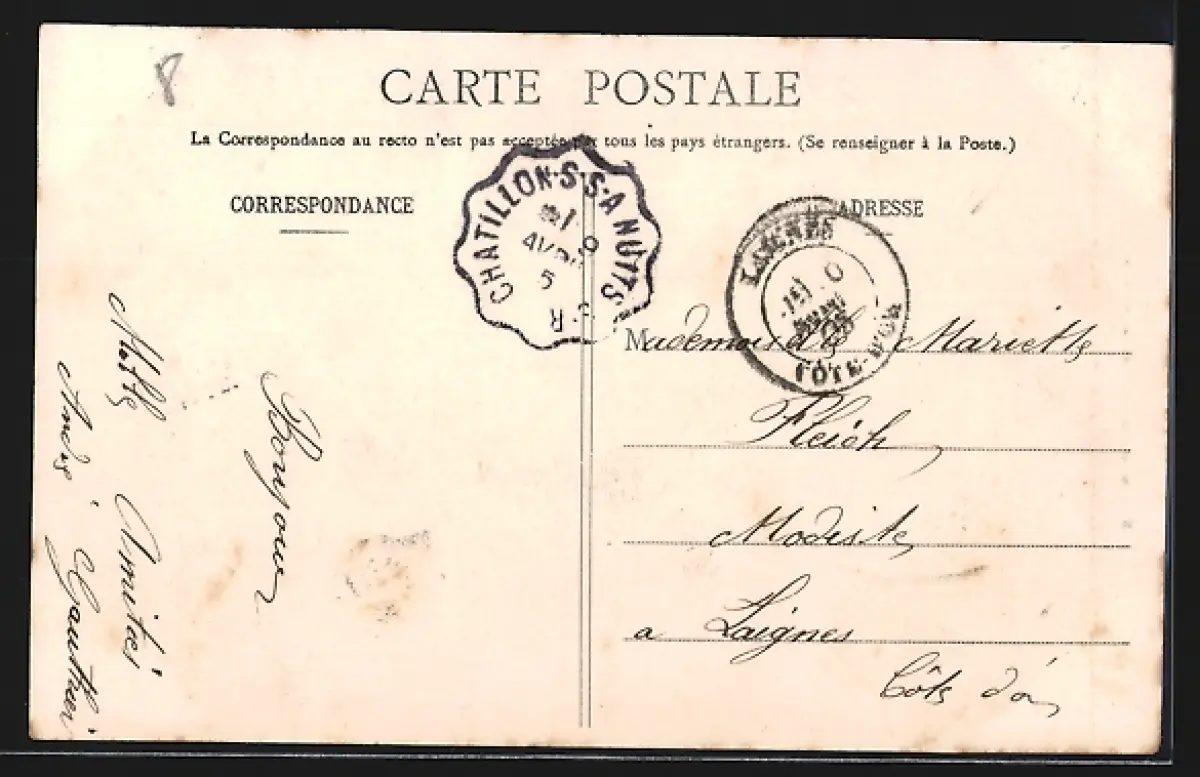 8
CARTE POSTALE
La Correspondance au recto n'est pas acceptée par tous les pays étrangers. (Se renseigner à la Poste.)
CORRESPONDANCE
ADRESSE
CHATILLON-S-S-A NUITS
LAIGNES
CÔTE-D'OR
Mademoiselle Mariette
Fleich
Modiste
a Laignes
Côte d'or
Bonjour
Amitiés
André Gauthier